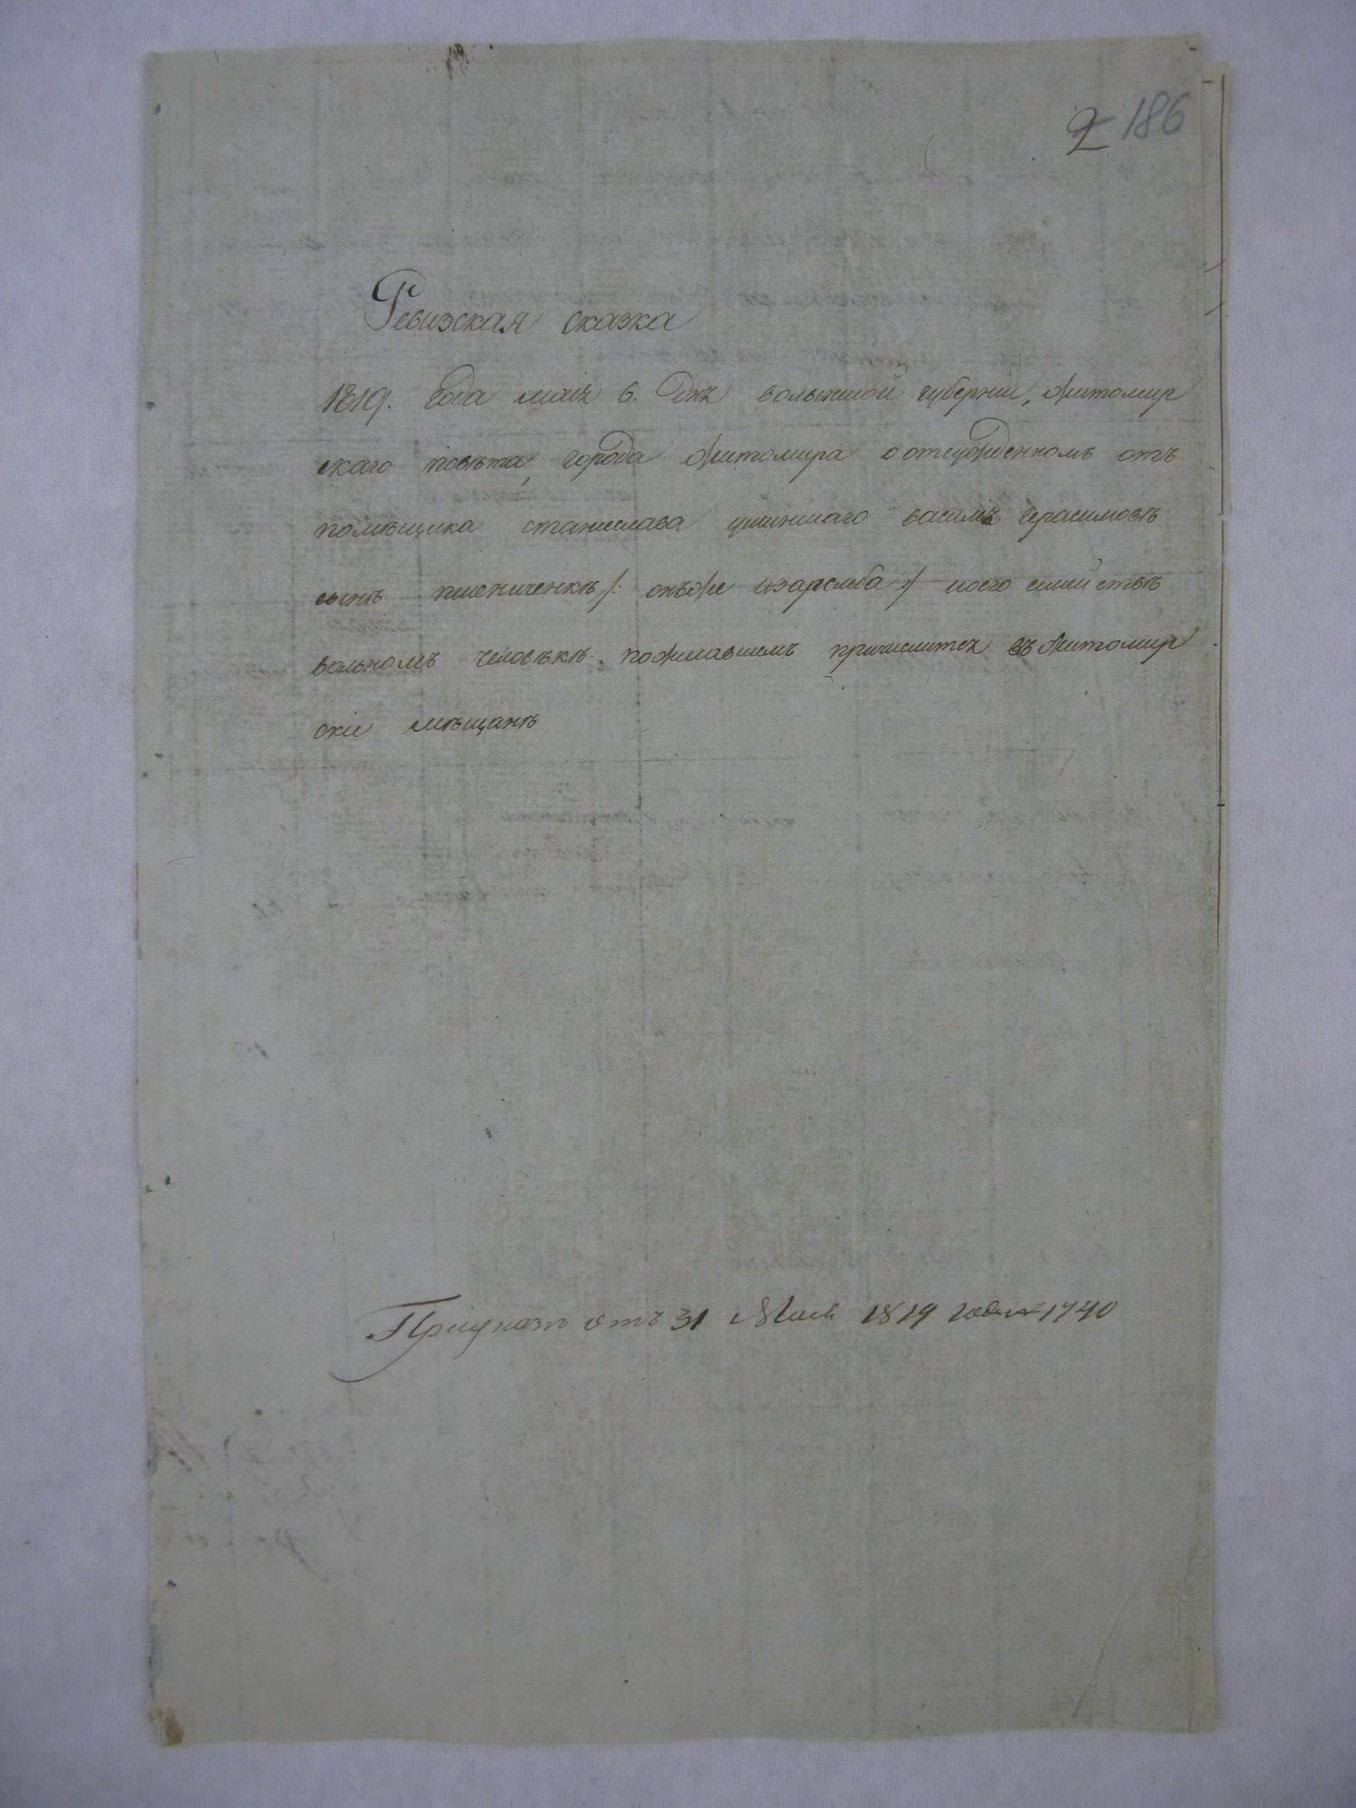 2 186
Ревизская сказка
1819. года маія 6. дня волынской губерніи, житомир
скаго повѣта, города житомира о отсужденномъ отъ
помѣщика станислава василія герасимовѣ
сынѣ пшениченкѣ /: онъже :/ иего семействѣ
вольномъ человѣкѣ пожелавшемъ причислится въ житомир
скіе мѣщанѣ
При указѣ отъ 31 Мая 1819 года № 1740